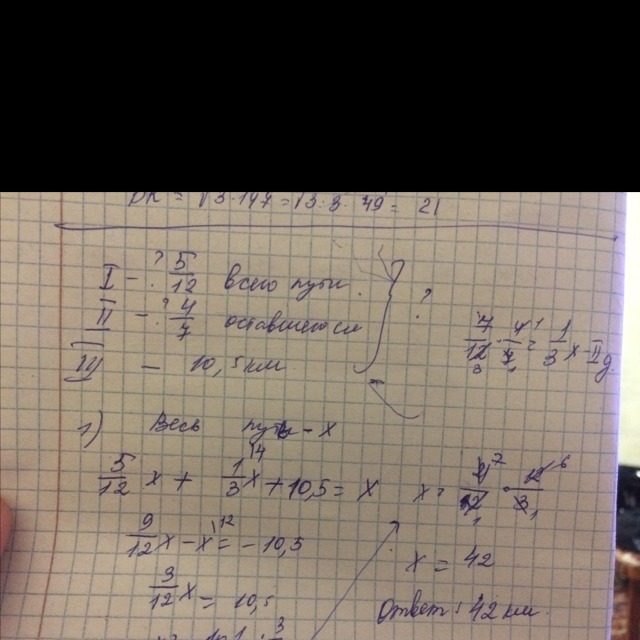 DK = √3·147 = √3·3·49 = 21
I – ? 5/12 всего пути
II – ? 4/7 оставшегося
III – 10,5 км
?
7/12 · 4/7 = 1/3 x – II д
1) Весь путь – x
5/12 x + 1/3 x + 10,5 = x
9/12 x – x = – 10,5
3/12 x = 10,5
x =
x = 42
Ответ: 42 км.